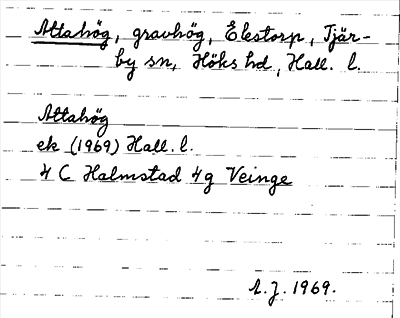 Attahög, gravhög, Elestorp, Tjär-
by sn, Höks hd, Hall. l.
Attahög
ek (1969) Hall. l.
4 C Halmstad 4g Veinge
A.J. 1969.